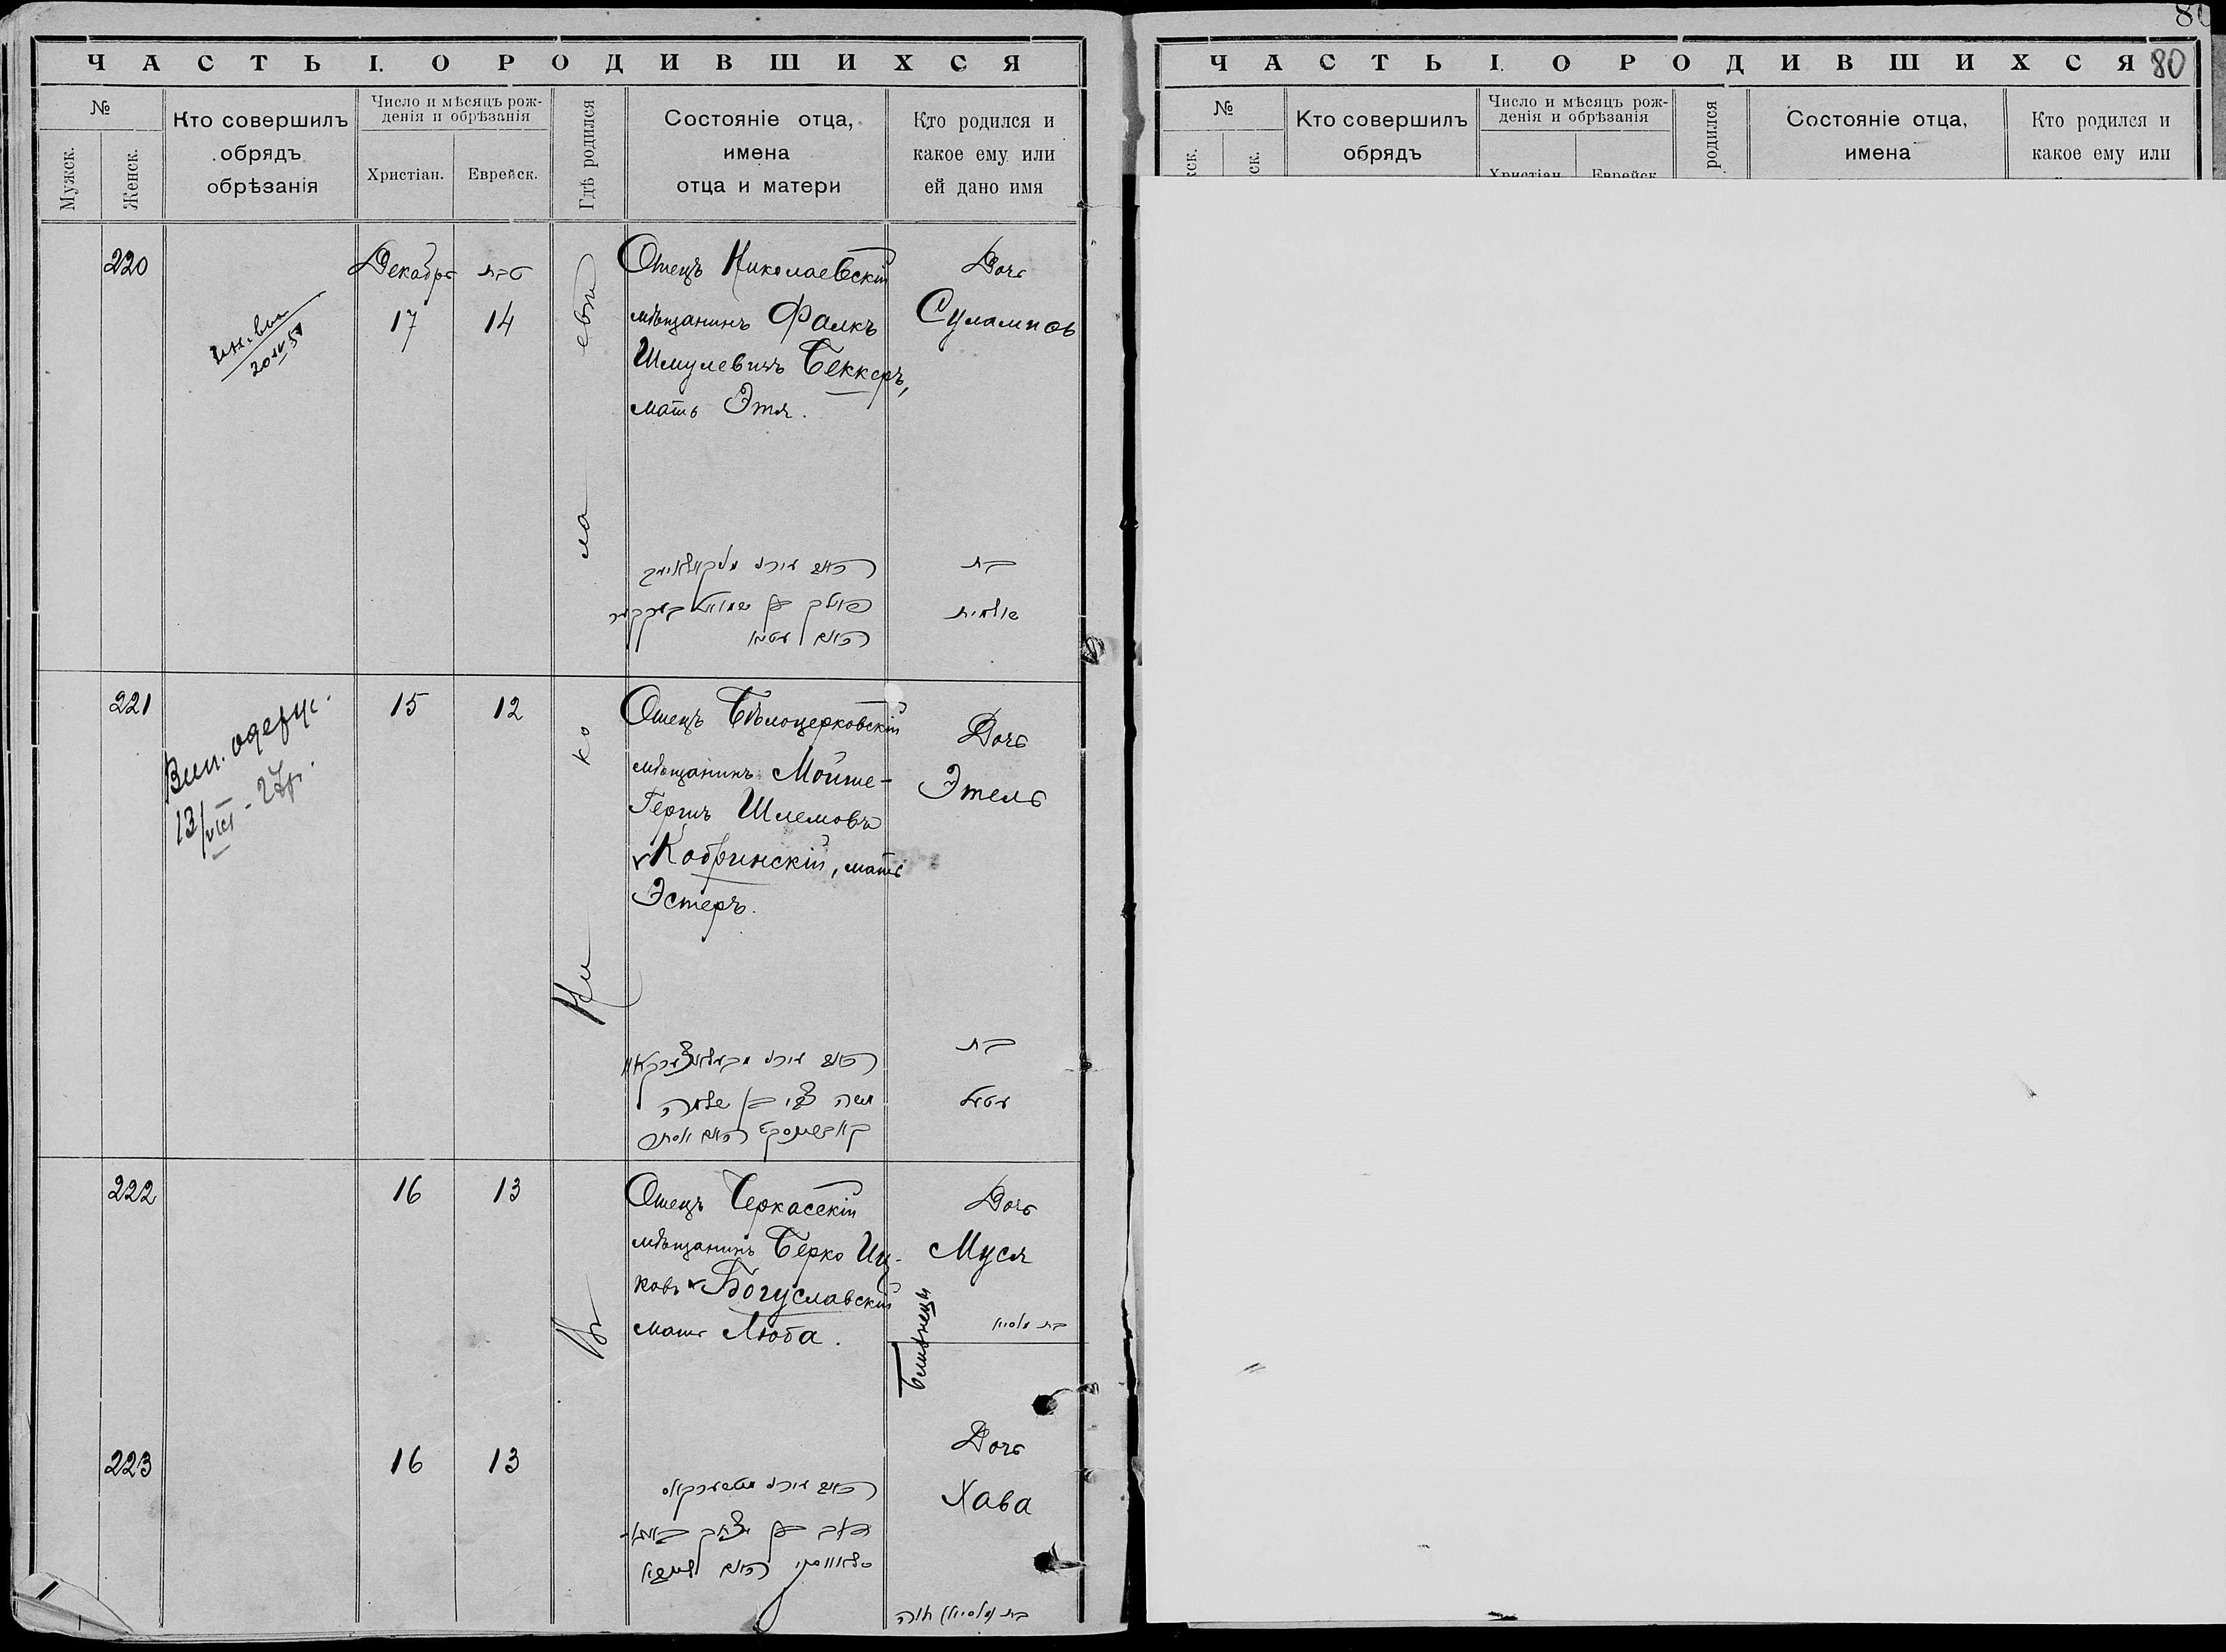 ЧАСТЬ I. О РОДИВШИХСЯ
№
Мужск.
Женск.
Кто совершилъ
обрядъ
обрѣзанія
Число и мѣсяцъ рож-
денія и обрѣзанія
Христіан.
Еврейск.
Гдѣ родился
Состояніе отца,
имена
отца и матери
Кто родился и
какое ему или
ей дано имя
220
Декабрь
17
טבת
14
Отецъ Николаевскій
мѣщанинъ Фалкъ
Шмулевичъ Беккеръ,
мать Этя.
Дочь
Суламиѳь
האב
פאלק בן שמואל בעקקער
האם
בת
שולמית
221
Вып.
13/VIII - 27р.
15
12
Отецъ Бѣлоцерковскій
мѣщанинъ Мойше-
Гершъ Шлемовъ
Кобринскій, мать
Эстеръ.
Дочь
Этель
משה צבי בן שלמה
האם אסתר
בת
עטיל
222
16
13
Отецъ Черкасскій
мѣщанинъ Берко Иц-
ковъ Богуславскій
мать Люба.
Дочь
Муся
בת מוסיא
Близнецы
223
16
13
בערק בן יצחק
האם ליובא
Дочь
Хава
חוה
Въ Николаевѣ
ЧАСТЬ I. О РОДИВШИХСЯ
80
№
Кто совершилъ
обрядъ
Число и мѣсяцъ рож-
денія и обрѣзанія
Христіан.
Еврейск.
родился
Состояніе отца,
имена
Кто родился и
какое ему или